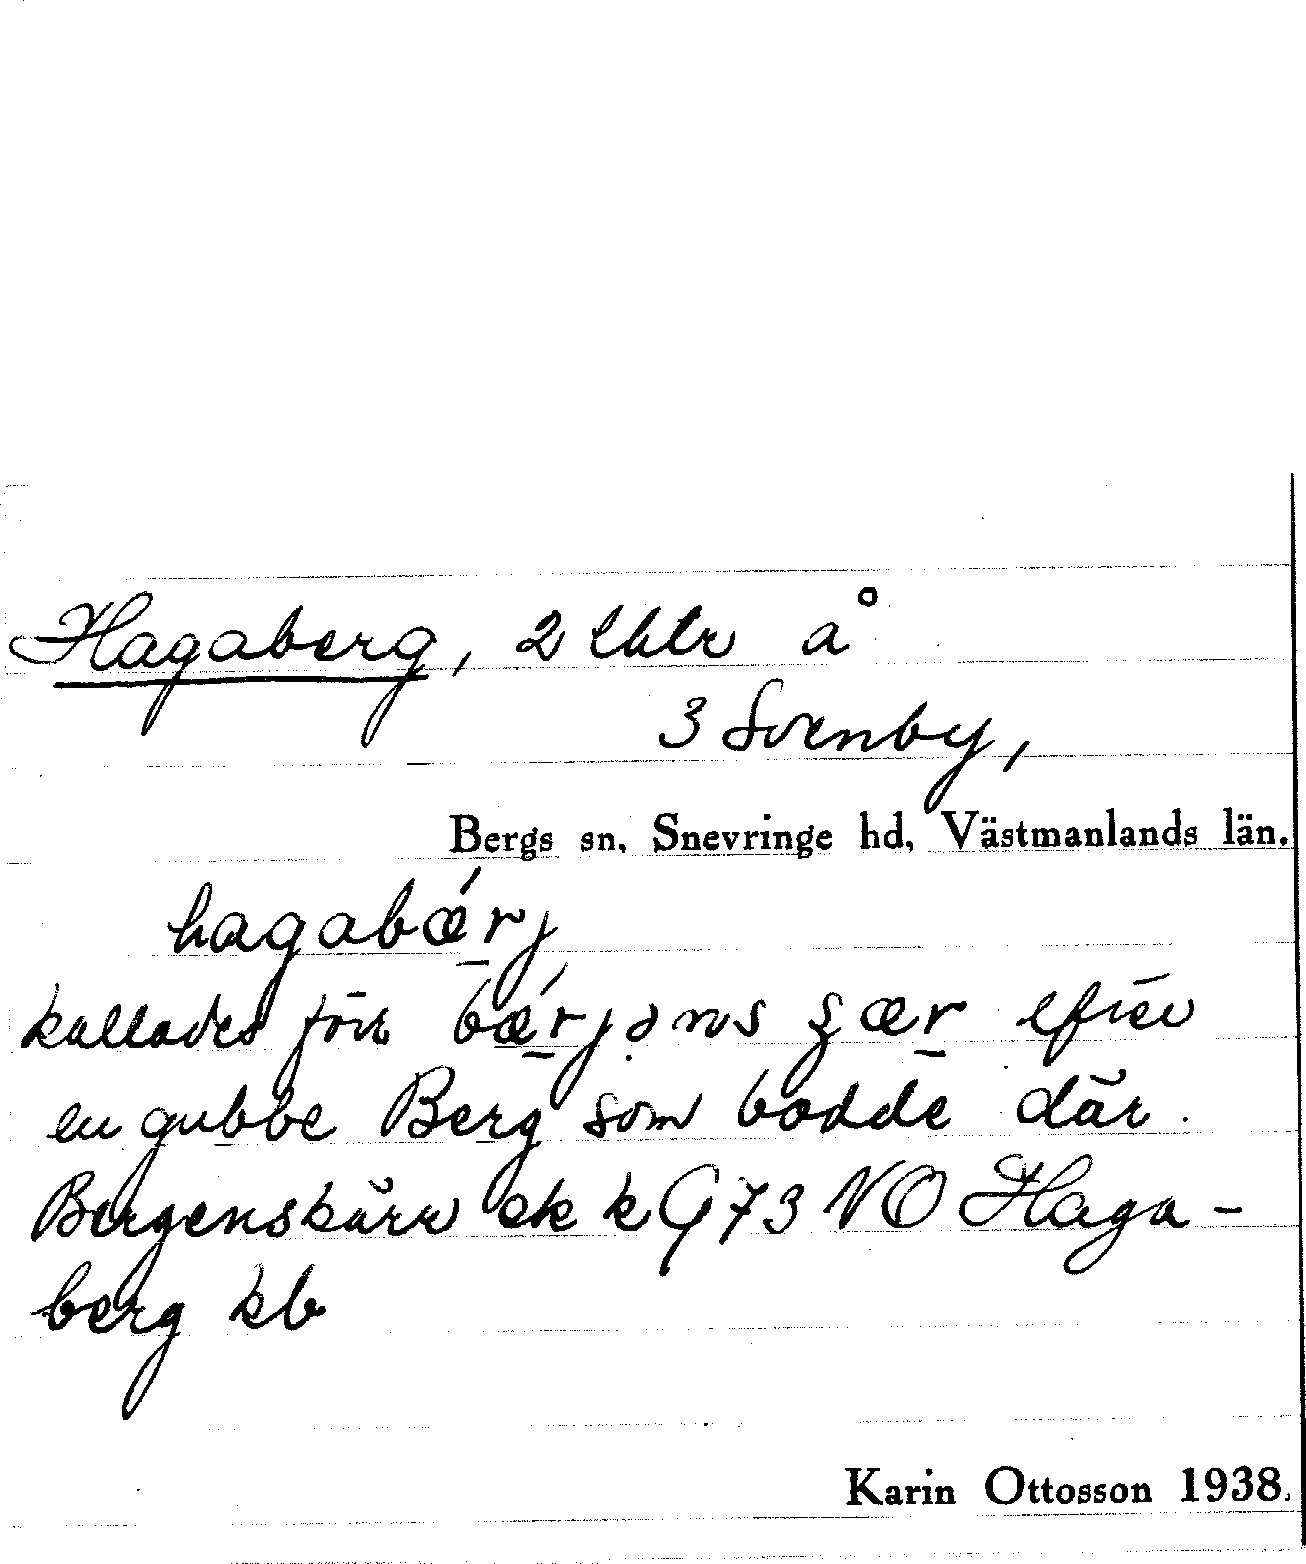 Hagaberg, 2 lhtr å
3 Svenby,
Bergs sn, Snevringe hd, Västmanlands län.
hagabǽrj
kallades förr bǽrjəns çær efter
en gubbe Berg som bodde där.
Bergenskärr ek k G 73 NO Haga-
berg kb
Karin Ottosson 1938.